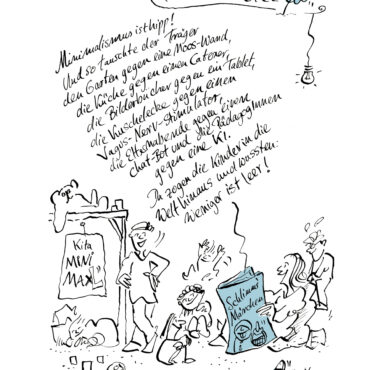 Minimalismus ist hipp!
Und so tauschte der Träger
den Garten gegen eine Moos-Wand,
die Küche gegen einen Caterer,
die Bilderbücher gegen ein Tablet,
die Kuschelecke gegen einen
Vagus-Nerv-Stimulator,
die Elternabende gegen einen
Chat-Bot und die Pädagoginnen
gegen eine KI.
Da zogen die Kinder in die
Welt hinaus und wussten:
weniger ist leer!
Kita
MINI
MAXL
Schlimme
Märchen